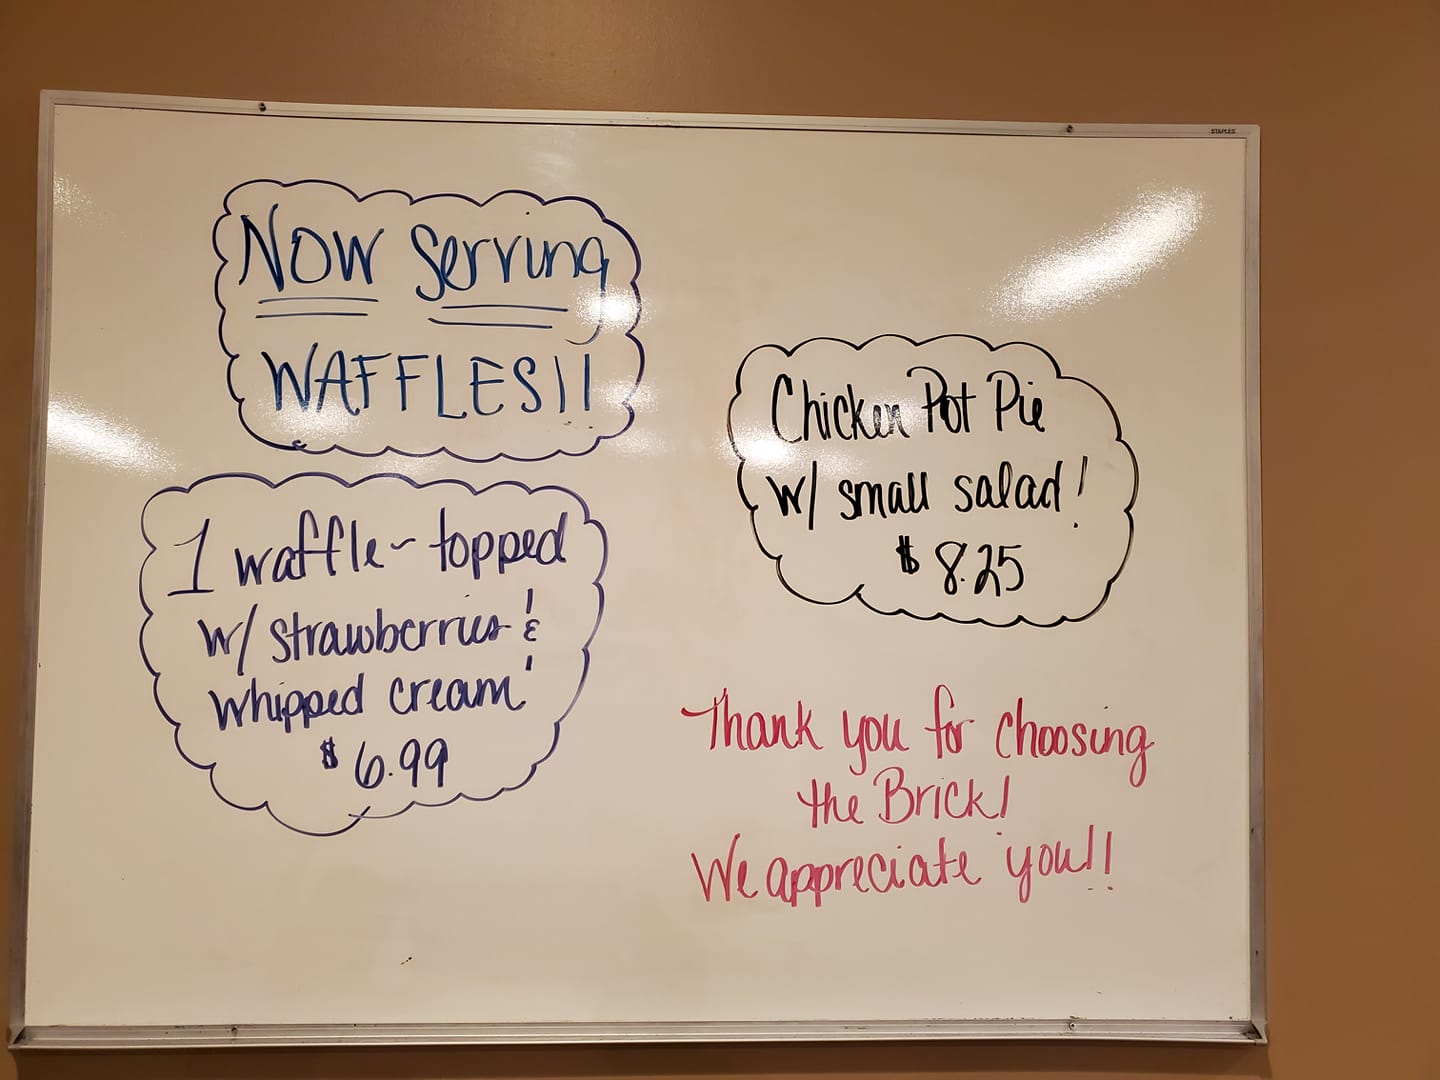 Now Serving
WAFFLES!!
1 waffle~topped
w/ strawberries &
whipped cream
$6.99
Chicken Pot Pie
w/ small salad!
$8.25
Thank you for choosing
the Brick!
We appreciate you!!
STAPLES